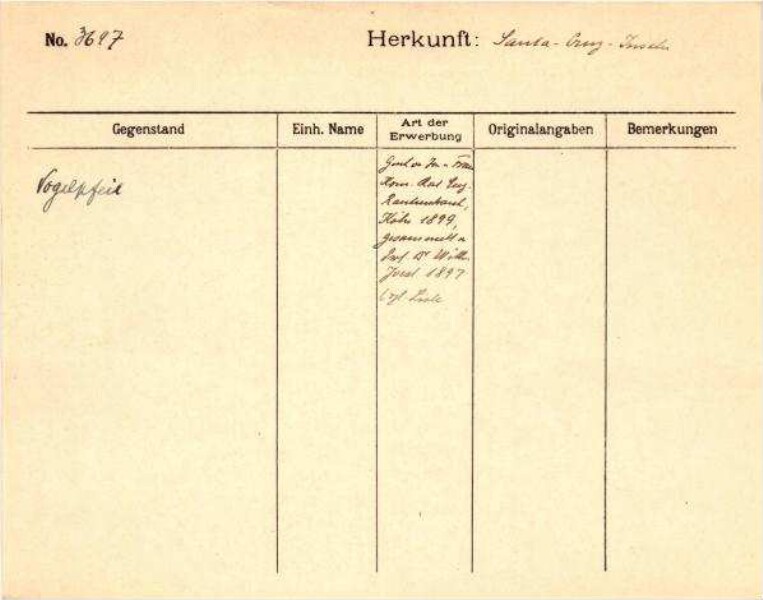 No. 3697 Herkunft: Santa-Cruz-Inseln
Gegenstand Einh. Name Art der Erwerbung Originalangaben Bemerkungen
Vogelpfeil
Gesch. v. Hn. u. Frau
Kom. Rat Eug.
Rautenstrauch,
Köln 1899,
gesammelt v.
Prof. Dr Wilh.
Joest 1897